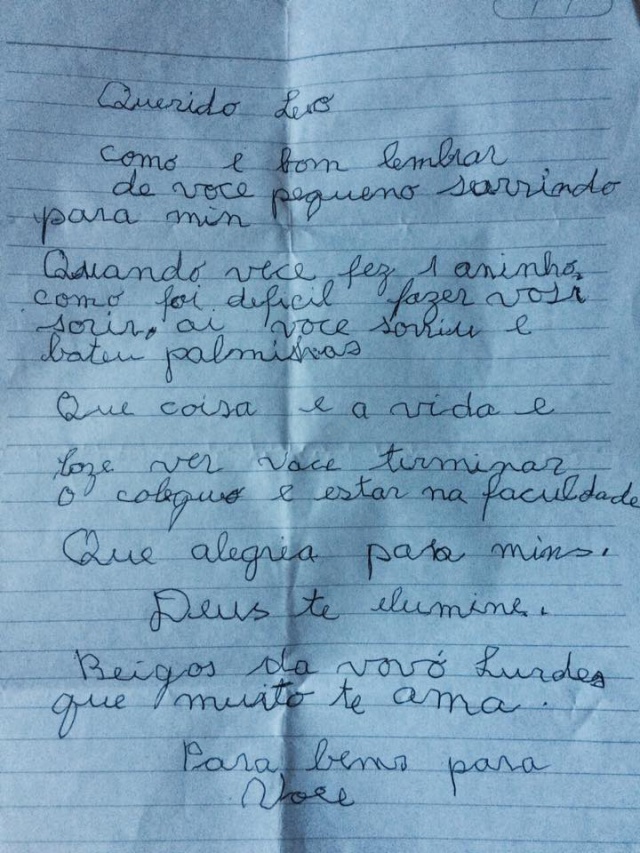 Querido Leo
como e bom lembrar
de voce pequeno sarrindo
para min
Quando vece fez 1 aninho,
como foi deficil fazer
sorir, ai voce sorriu e
bateu palminhas
Que coisa e a vida e
hoze ver voce terminar
o coleguo e estar na faculdade
Que alegria para mins.
Deus te elumine.
Beigos da vovó Lurdes
que muito te ama.
Para bems para
Voce